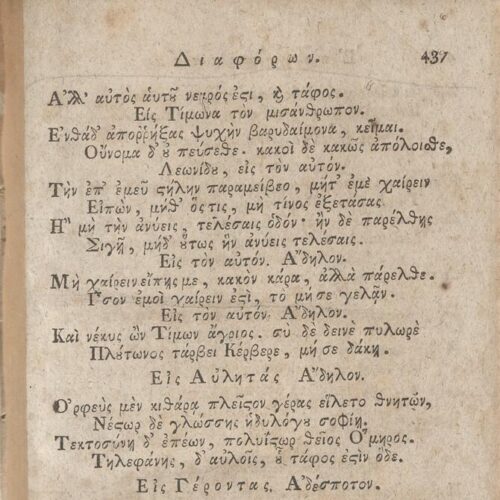 Διαφόρων. 437
Ἀλλ' αὐτὸς αὑτῇ νεκρός ἐστι, καὶ τάφος.
Εἰς Τίμωνα τὸν μισάνθρωπον.
Ἐνθάδ' ἀπορρήξας ψυχὴν βαρυδαίμονα, κεῖμαι.
Οὔνομα δ' οὐ πεύσεσθε· κακοὶ δὲ κακῶς ἀπόλοισθε,
Λεωνίδου, εἰς τὸν αὐτόν.
Τὴν ἐπ' ἐμεῦ στήλην παραμείβεο, μήτ' ἐμὲ χαίρειν
Εἰπὼν, μήθ' ὅςτις, μὴ τίνος ἐξετάσας.
Ἢ μὴ τὴν ἀνύεις, τελέσαις ὁδόν· ἢν δὲ παρέλθῃς
Σιγῇ, μηδ' οὕτως ἣν ἀνύεις τελέσαις.
Εἰς τὸν αὐτόν. Ἄδηλον.
Μὴ χαίρειν εἴπῃς με, κακὸν κάρα, ἀλλὰ πάρελθε.
Ἶσον ἐμοὶ χαίρειν ἐστὶ, τὸ μή σε γελᾷν.
Εἰς τὸν αὐτόν. Ἄδηλον.
Καὶ νέκυς ὢν Τίμων ἄγριος. σὺ δὲ δεινὲ πυλωρὲ
Πλούτωνος τάρβει Κέρβερε, μή σε δάκῃ.
Εἰς Αὐλητάς Ἄδηλον.
Ὀρφεὺς μὲν κιθάρᾳ πλεῖστον γέρας εἵλετο θνητῶν,
Νέστωρ δὲ γλώσσης ἡδυλόγου σοφίῃ.
Τεκτοσύνῃ δ' ἐπέων, πολυΐστωρ θεῖος Ὅμηρος.
Τηλεφάνης, δ' αὐλοῖς, οὗ τάφος ἐστὶν ὅδε.
Εἰς Γέροντας. Ἀδέσποτον.